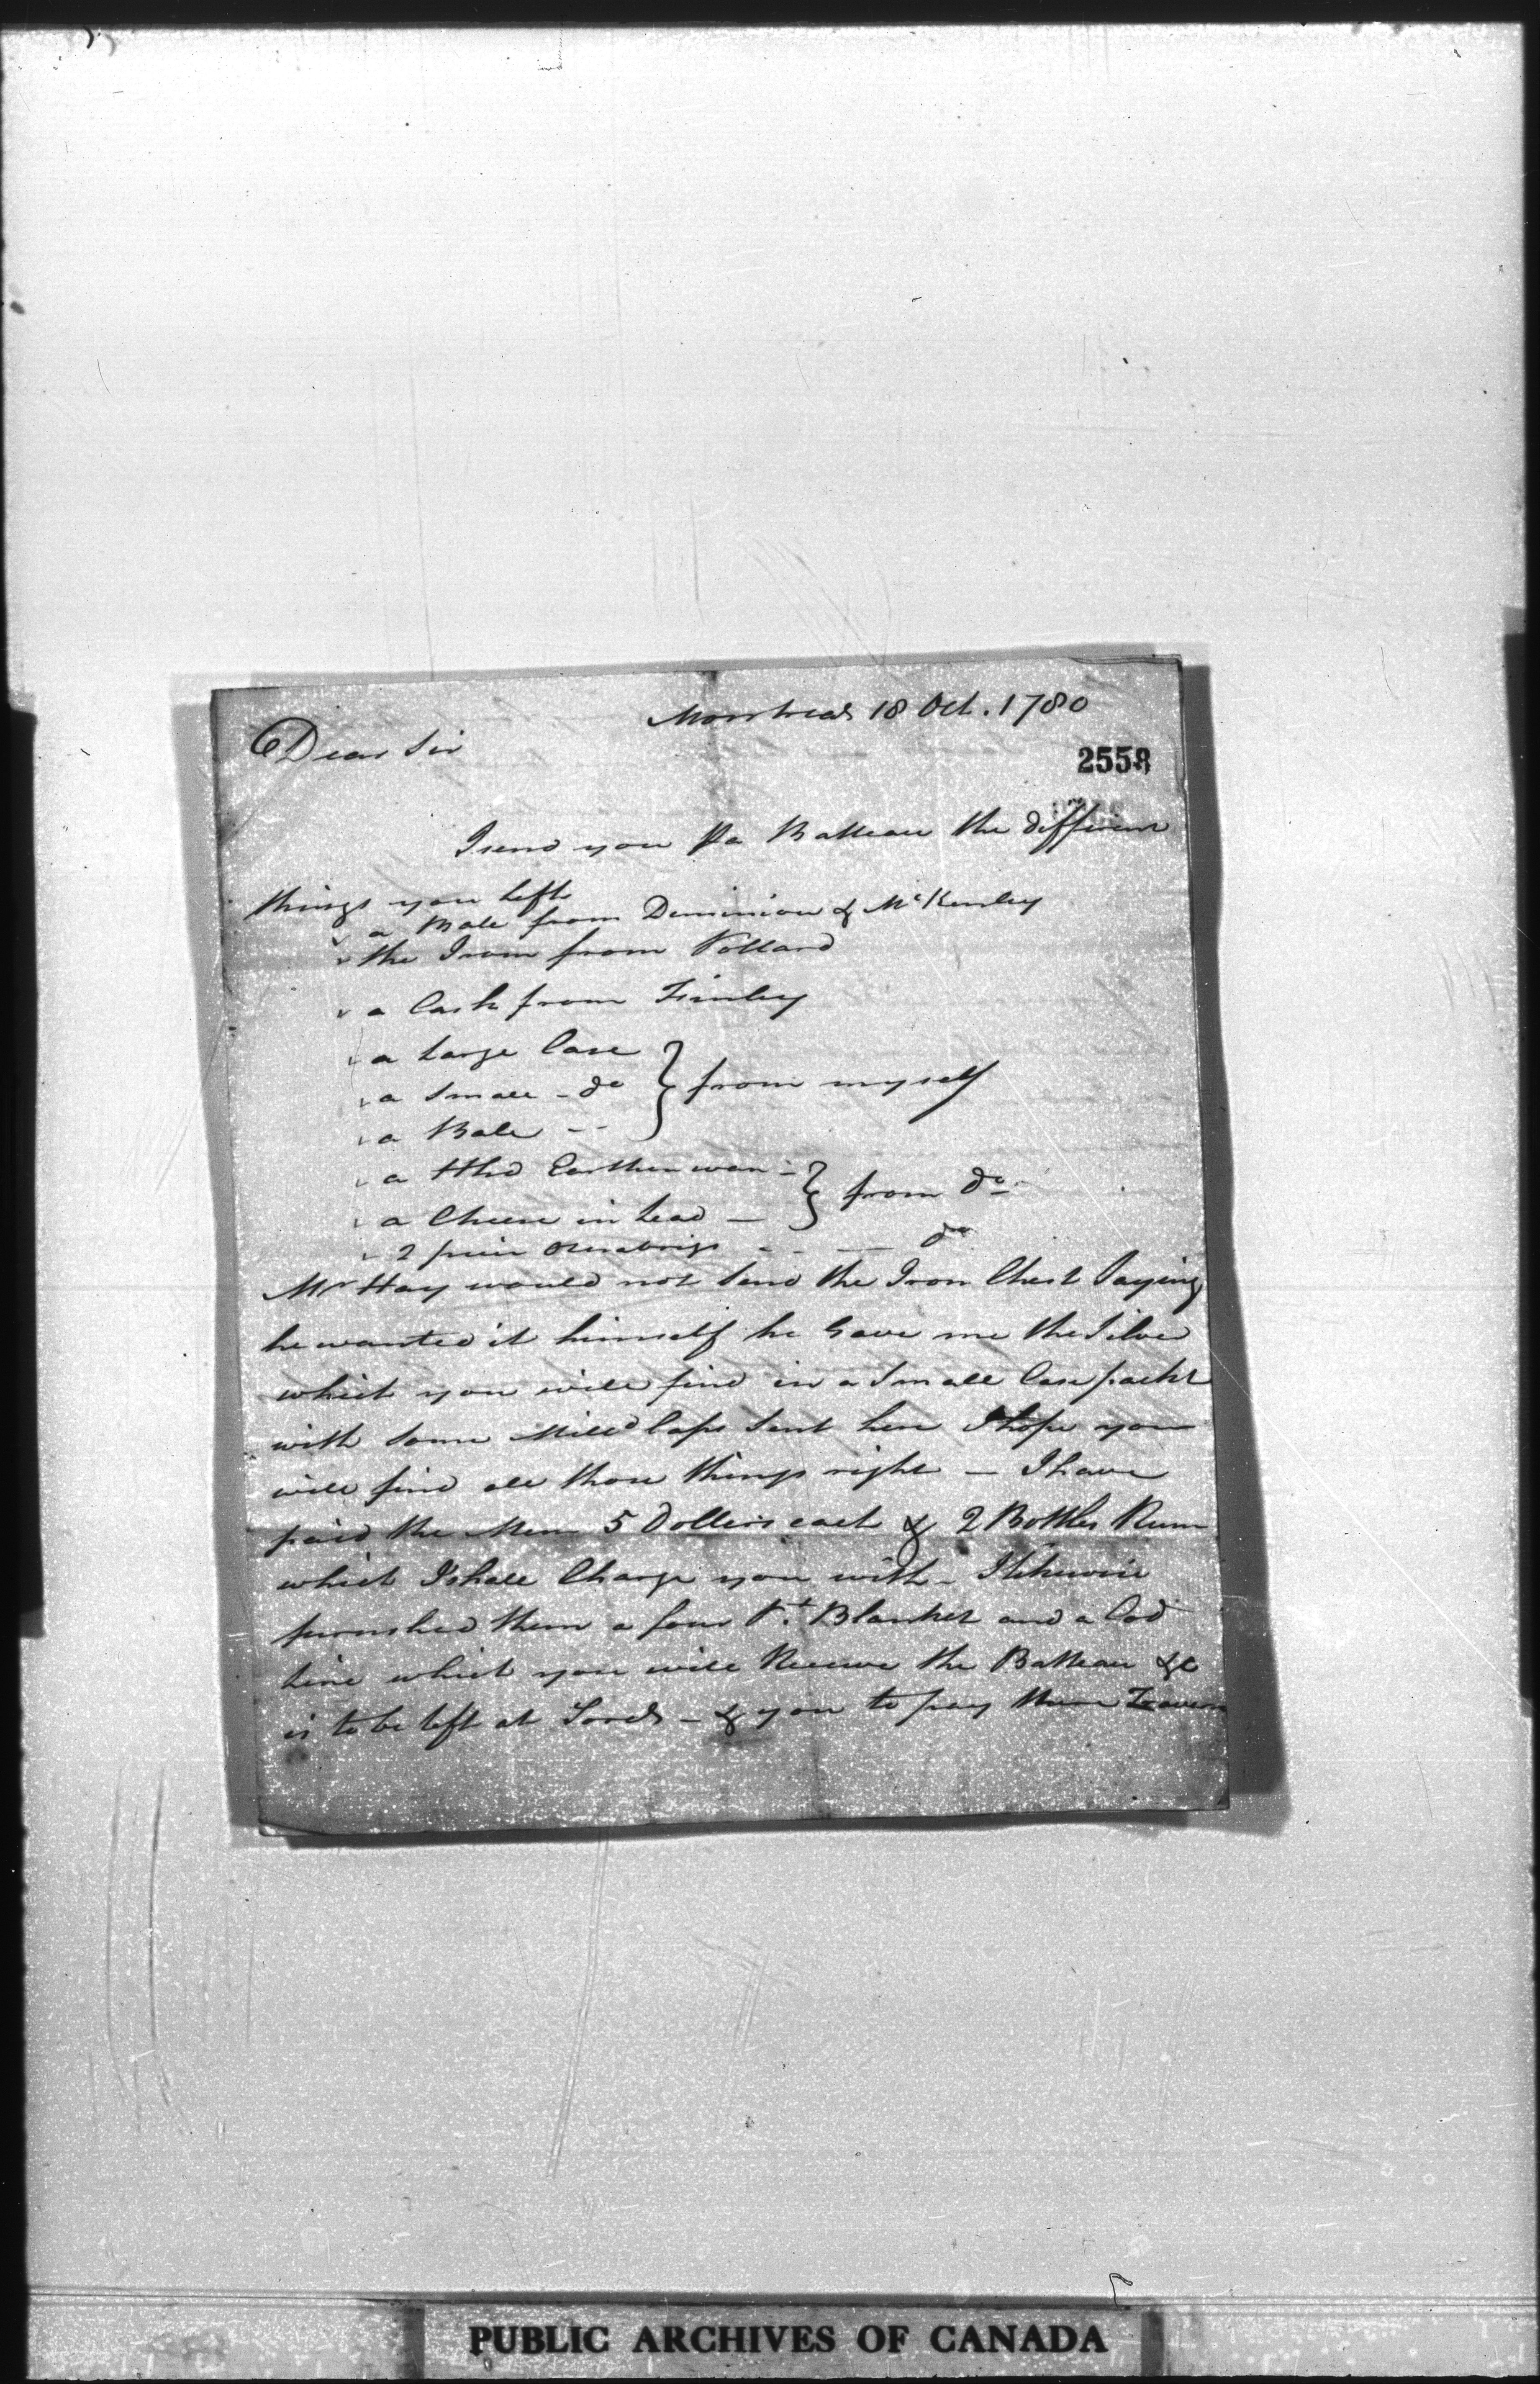 Montreal 18 Oct. 1780
Dear Sir
2558
I send you Pa Batteau the different
things you left
a Bale from Dominion & McKenley
the Iron from Pollard
a Cask from Finley
a Large Case
a Small - do } from myself
a Bale - -
a Hhd Earthen ware -
a Cheese in Lead - } from do
2 peice Oznabrigs - - - do
Mr Hay would not Send the Iron Chest Saying
he wanted it himself he Gave me the Silver
which you will find in a Small Case packt
with Some Mill'd Caps Sent here I hope you
will find all those things right - I have
paid the Men 5 Dollers each & 2 Bottles Rum
which I shall Charge you with - I likewise
furnished them a four Pt Blanket and a Cod
line which you will Receive the Batteau &c
is to be left at Sorel - & you to pay there
PUBLIC ARCHIVES OF CANADA